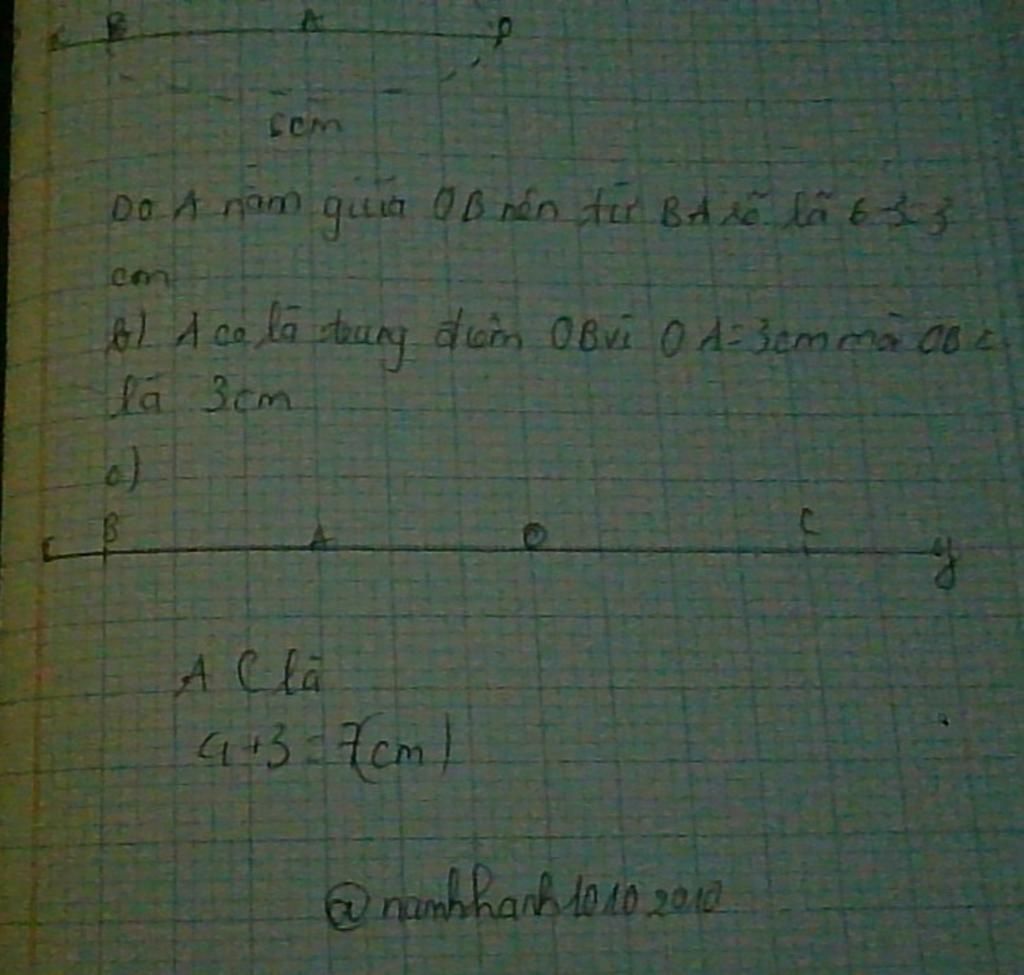 B A
6cm
Do A nằm giữa OB nên từ BA sẽ là 6-3=3
cm
b) A có là trung điểm OB vì OA=3cm mà OB
là 3cm
c)
B A O C y
AC là
4+3=7(cm)
@namkhanh10102010